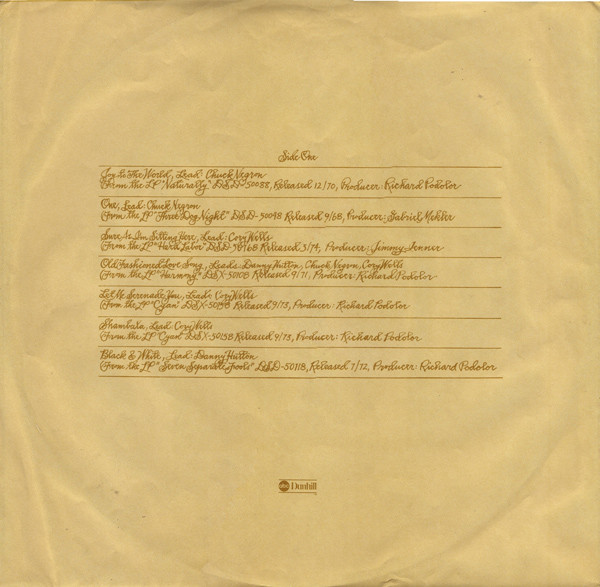 Side One
Joy to The World, Lead: Chuck Negron
(From the LP "Naturally" DSD-50088, Released 12/70, Producer: Richard Podolor
One, Lead: Chuck Negron
(From the LP "Three Dog Night" DSD-50048 Released 9/68, Producer: Gabriel Mekler
Sure As I'm Sitting Here, Lead: Cory Wells
(From the LP "Hard Labor" DSD-50168 Released 3/74, Producer: Jimmy Ienner
Old Fashioned Love Song, Leads: Danny Hutton, Chuck Negron, Cory Wells
(From the LP "Harmony" DSX-50108 Released 9/71, Producer: Richard Podolor
Let Me Serenade You, Lead: Cory Wells
(From the LP "Cyan" DSX-50158 Released 9/73, Producer: Richard Podolor
Shambala, Lead Cory Wells
(From the LP "Cyan" DSX-50158 Released 9/73, Producer: Richard Podolor
Black & White, Lead: Danny Hutton
(From the LP "Seven Separate Fools" DSD-50118, Released 7/72, Producer: Richard Podolor
abc Dunhill